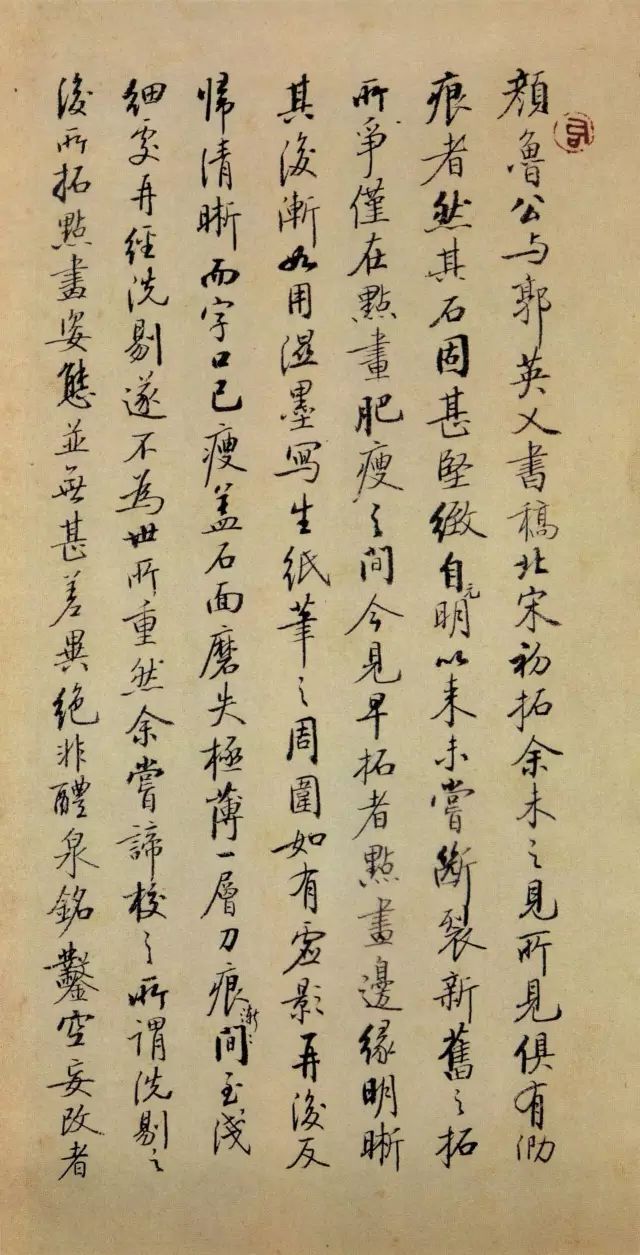 顏魯公与郭英乂書稿北宋初拓余未之見所見俱有泐
痕者然其石固甚堅緻自元明以来未嘗斷裂新舊之拓
所爭僅在點畫肥瘦之間今見早拓者點畫邊緣明晰
其後漸如用溼墨寫生紙筆之周圍如有虛影再後反
帰清晰而字口已瘦盖石面磨失極薄一層刀痕漸漸間至淺
細更再經洗剔遂不為世所重然余嘗諦校之所謂洗剔之
後所拓點畫姿態並無甚差異絕非醴泉銘鑿空妄改者